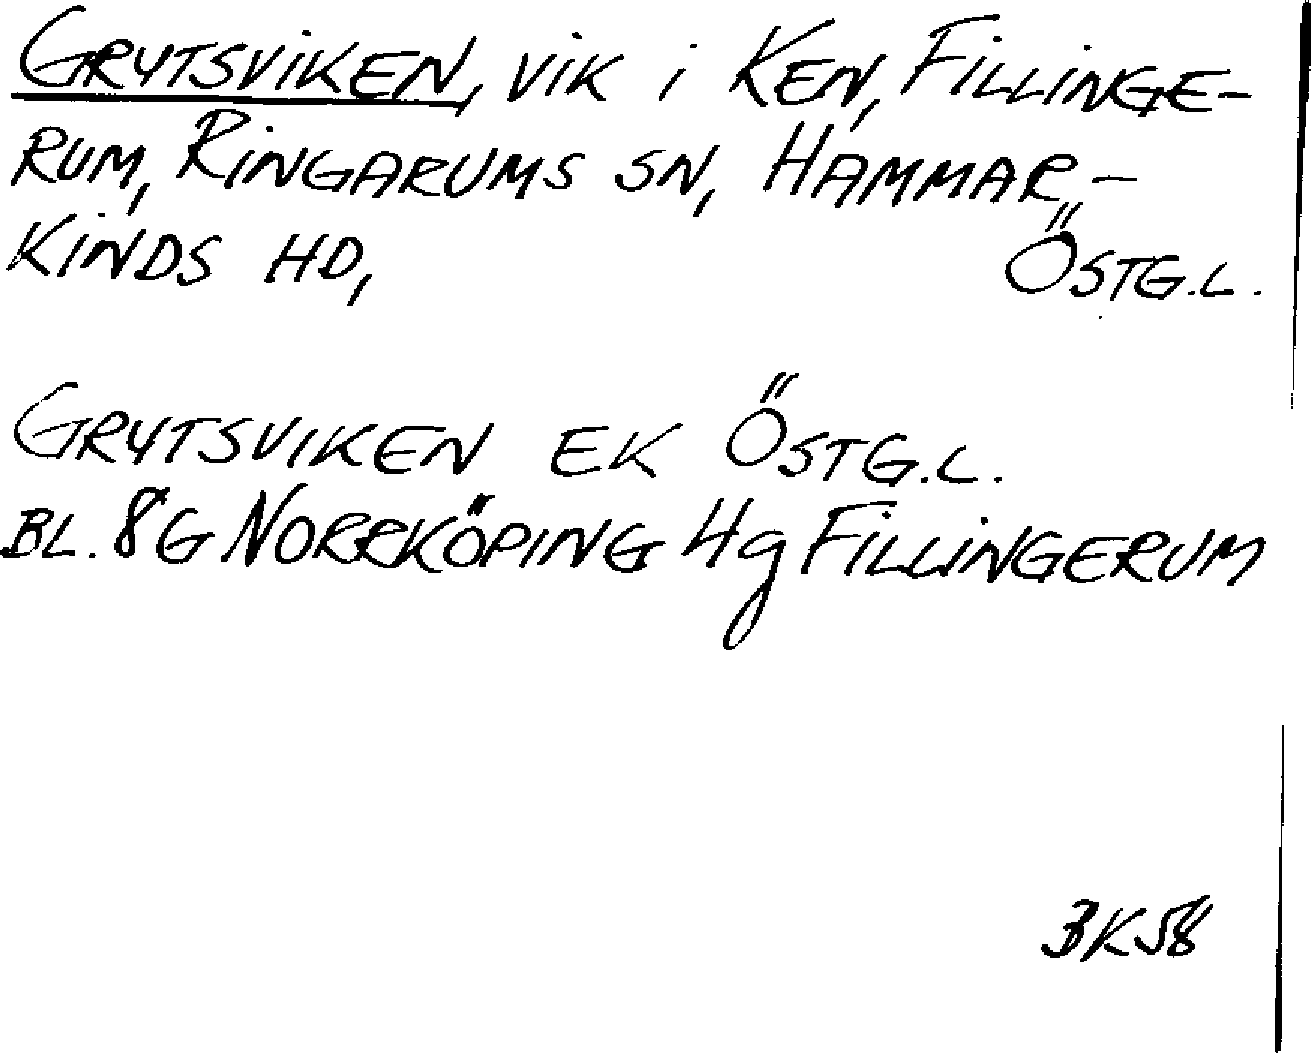 GRYTSVIKEN, VIK i KEN, FILLINGE-
RUM, RINGARUMS SN, HAMMAR-
KINDS HD, ÖSTG.L.
GRYTSVIKEN EK ÖSTG.L.
BL. 8G NORRKÖPING 4g FILLINGERUM
BK58